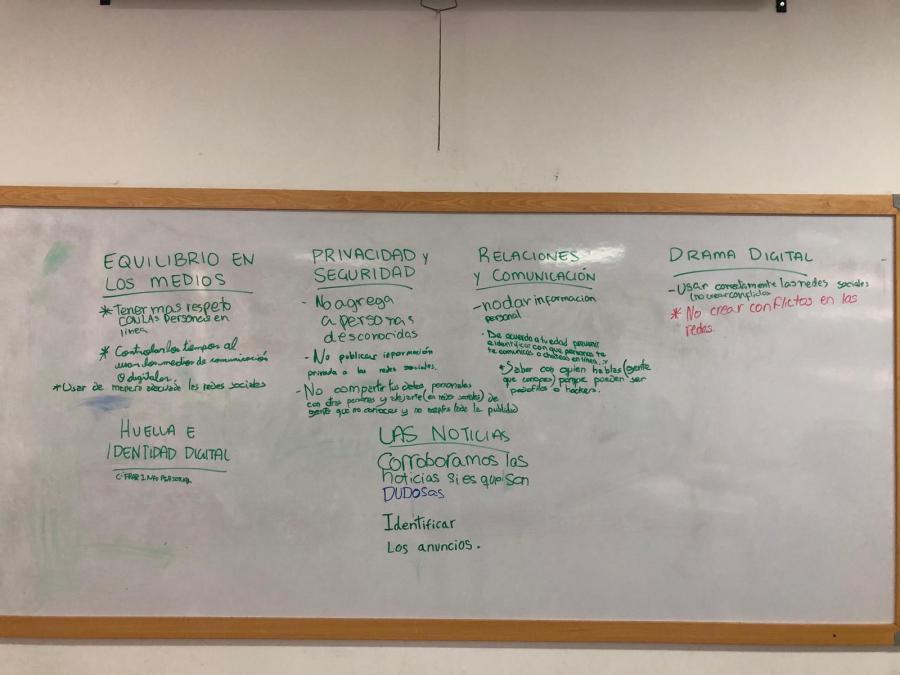 EQUILIBRIO EN
LOS MEDIOS
* Tener mas respeto
con las personas en
linea
* Controlar los tiempos al
usar los medios de comunicación
o digitales.
* Usar de manera adecuada las redes sociales
PRIVACIDAD Y
SEGURIDAD
- No agrega
a personas
desconocidas
- No publicar información
privada a las redes sociales.
- No comparte tus datos personales
con otras personas y alejarte (en redes sociales) de
gente que no conoces y no toda la publicidad
RELACIONES
Y COMUNICACIÓN
- no dar informacion
personal
- De acuerdo a tu edad prevenir
e identificar con que personas te
te comunicas o chateas en linea.
* Saber con quien hablas (gente
que conoces) porque pueden ser
pedofilos o hackers.
DRAMA DIGITAL
- Usar correctamente las redes sociales
(no crear conflictos
* No crear conflictos en las
redes.
HUELLA E
IDENTIDAD DIGITAL
CIFRAR INFO PERSONAL
LAS NOTICIAS
Corroboramos las
noticias si es que son
DUDOSAS
Identificar
Los anuncios.